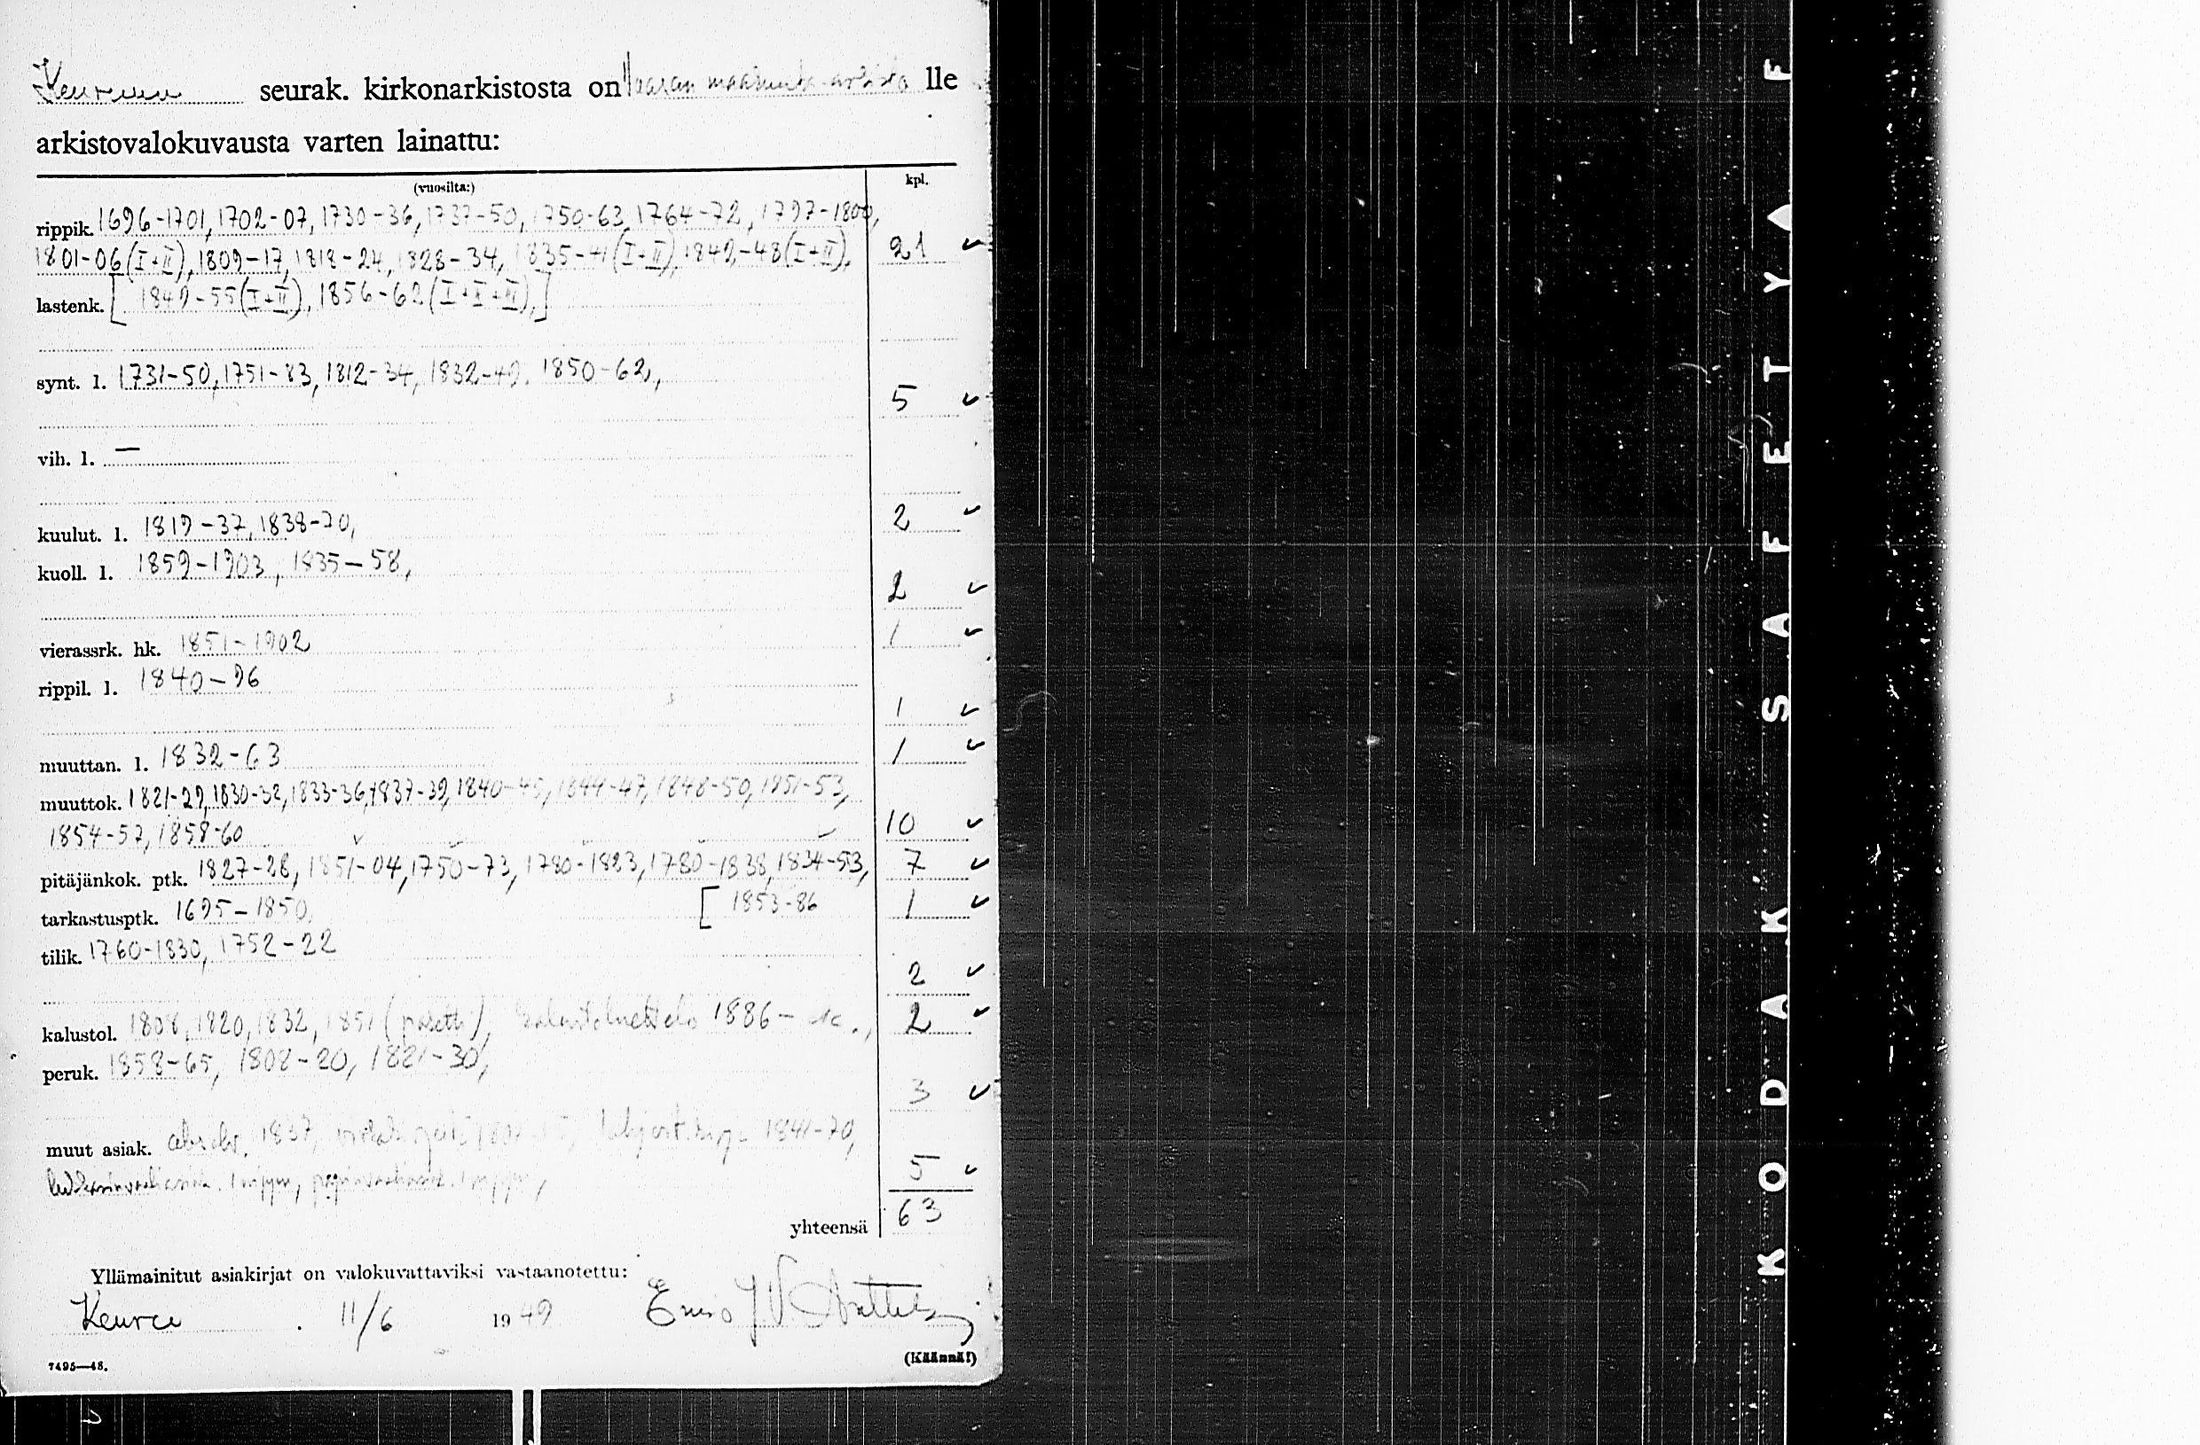 Keuruun seurak. kirkonarkistosta on Vaasan maakunta-arkisto lle
arkistovalokuvausta varten lainattu:
(vuosilta:) kpl.
rippik. 1696-1701, 1702-07, 1730-36, 1737-50, 1750-63, 1764-72, 1797-1800,
1801-06 (I+II), 1809-17, 1818-24, 1828-34, 1835-41 (I+II), 1842-48 (I+II), 21 ✓
lastenk. [ 1849-55 (I+II), 1856-62 (I+II+III), ]
synt. l. 1731-50, 1751-83, 1812-34, 1832-49, 1850-62,
5 ✓
vih. l. —
kuulut. l. 1819-37, 1838-70, 2 ✓
kuoll. l. 1859-1903, 1835-58,
2 ✓
vierassrk. hk. 1851-1902 1 ✓
rippil. l. 1840-96
1 ✓
muuttan. l. 1832-63 1 ✓
muuttok. 1821-29, 1830-32, 1833-36, 1837-39, 1840-43, 1844-47, 1848-50, 1851-53,
1854-57, 1858-60 10 ✓
pitäjänkok. ptk. 1827-28, 1851-04, 1750-73, 1780-1823, 1780-1838, 1834-53, 7 ✓
tarkastusptk. 1695-1850, [ 1853-86 1 ✓
tilik. 1760-1830, 1752-22
2 ✓
kalustol. 1808, 1820, 1832, 1851 kalustoluettelo 1886- 2 ✓
peruk. 1858-65, 1802-20, 1821-30,
3 ✓
muut asiak. 1837, 1841-70,
5 ✓
yhteensä 63
Yllämainitut asiakirjat on valokuvattaviksi vastaanotettu:
Keuruu 11/6 1949
7495—48. (Käännä!)
KODAK SAFETY A F